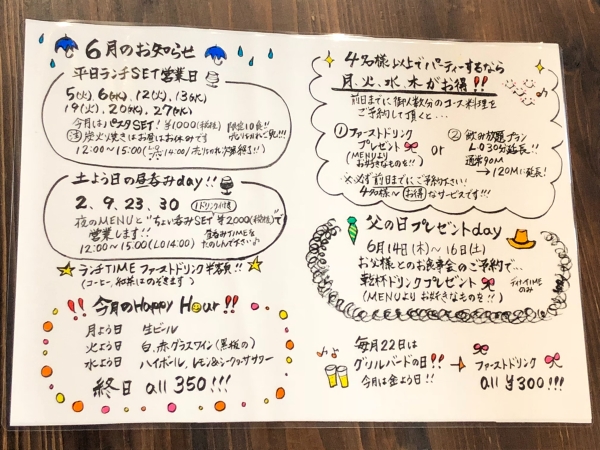 6月のお知らせ
平日ランチSET営業日
5(火)、6(水)、12(火)、13(水)
19(火)、20(水)、27(水)
今月はパスタSET! ¥1000(税抜) 限定10食!!
㊟炭火焼きはお昼はお休みです
12:00~15:00
土よう日の昼呑みday!!
2、9、23、30 1ドリンク付き
夜のMENUと"ちょい呑みSET¥2,000(税抜)"で
営業します!! 昼呑みTIMEを
12:00~15:00(LO14:00) たのしんで下さい♪
ランチTIME ファーストドリンク半客氣!!
(コーヒー、和茶はのぞきます)
!!今月のHappy Hour!!
月よう日 生ビール
火よう日 白、赤グラスワイン(黒板の)
水よう日 ハイボール、レモン&シークァーサーサワー
終日 all 350!!!
4名様以上でパーティーするなら
月、火、水、木がお得!!
前日までに御人数分のコース料理を
ご予約して頂くと…
①ファーストドリンク
プレゼント
(MENUより
お好きなものを!!)
or
②飲み放題プラン
L.O30分延長!!
通常90M
→120Mに延長!
※必ず前日までにご予約下さい!
4名様~お得なサービスです!!!
父の日プレゼントday
6月14日(木)~16日(土)
お父様とのお食事会のご予約で…
乾杯ドリンクプレゼント
(MENUよりお好きなものを!!)
ディナーTIMEのみ
毎月22日は
グリルバードの日!!
今月は金よう日!!
→ファーストドリンク
all ¥300!!!